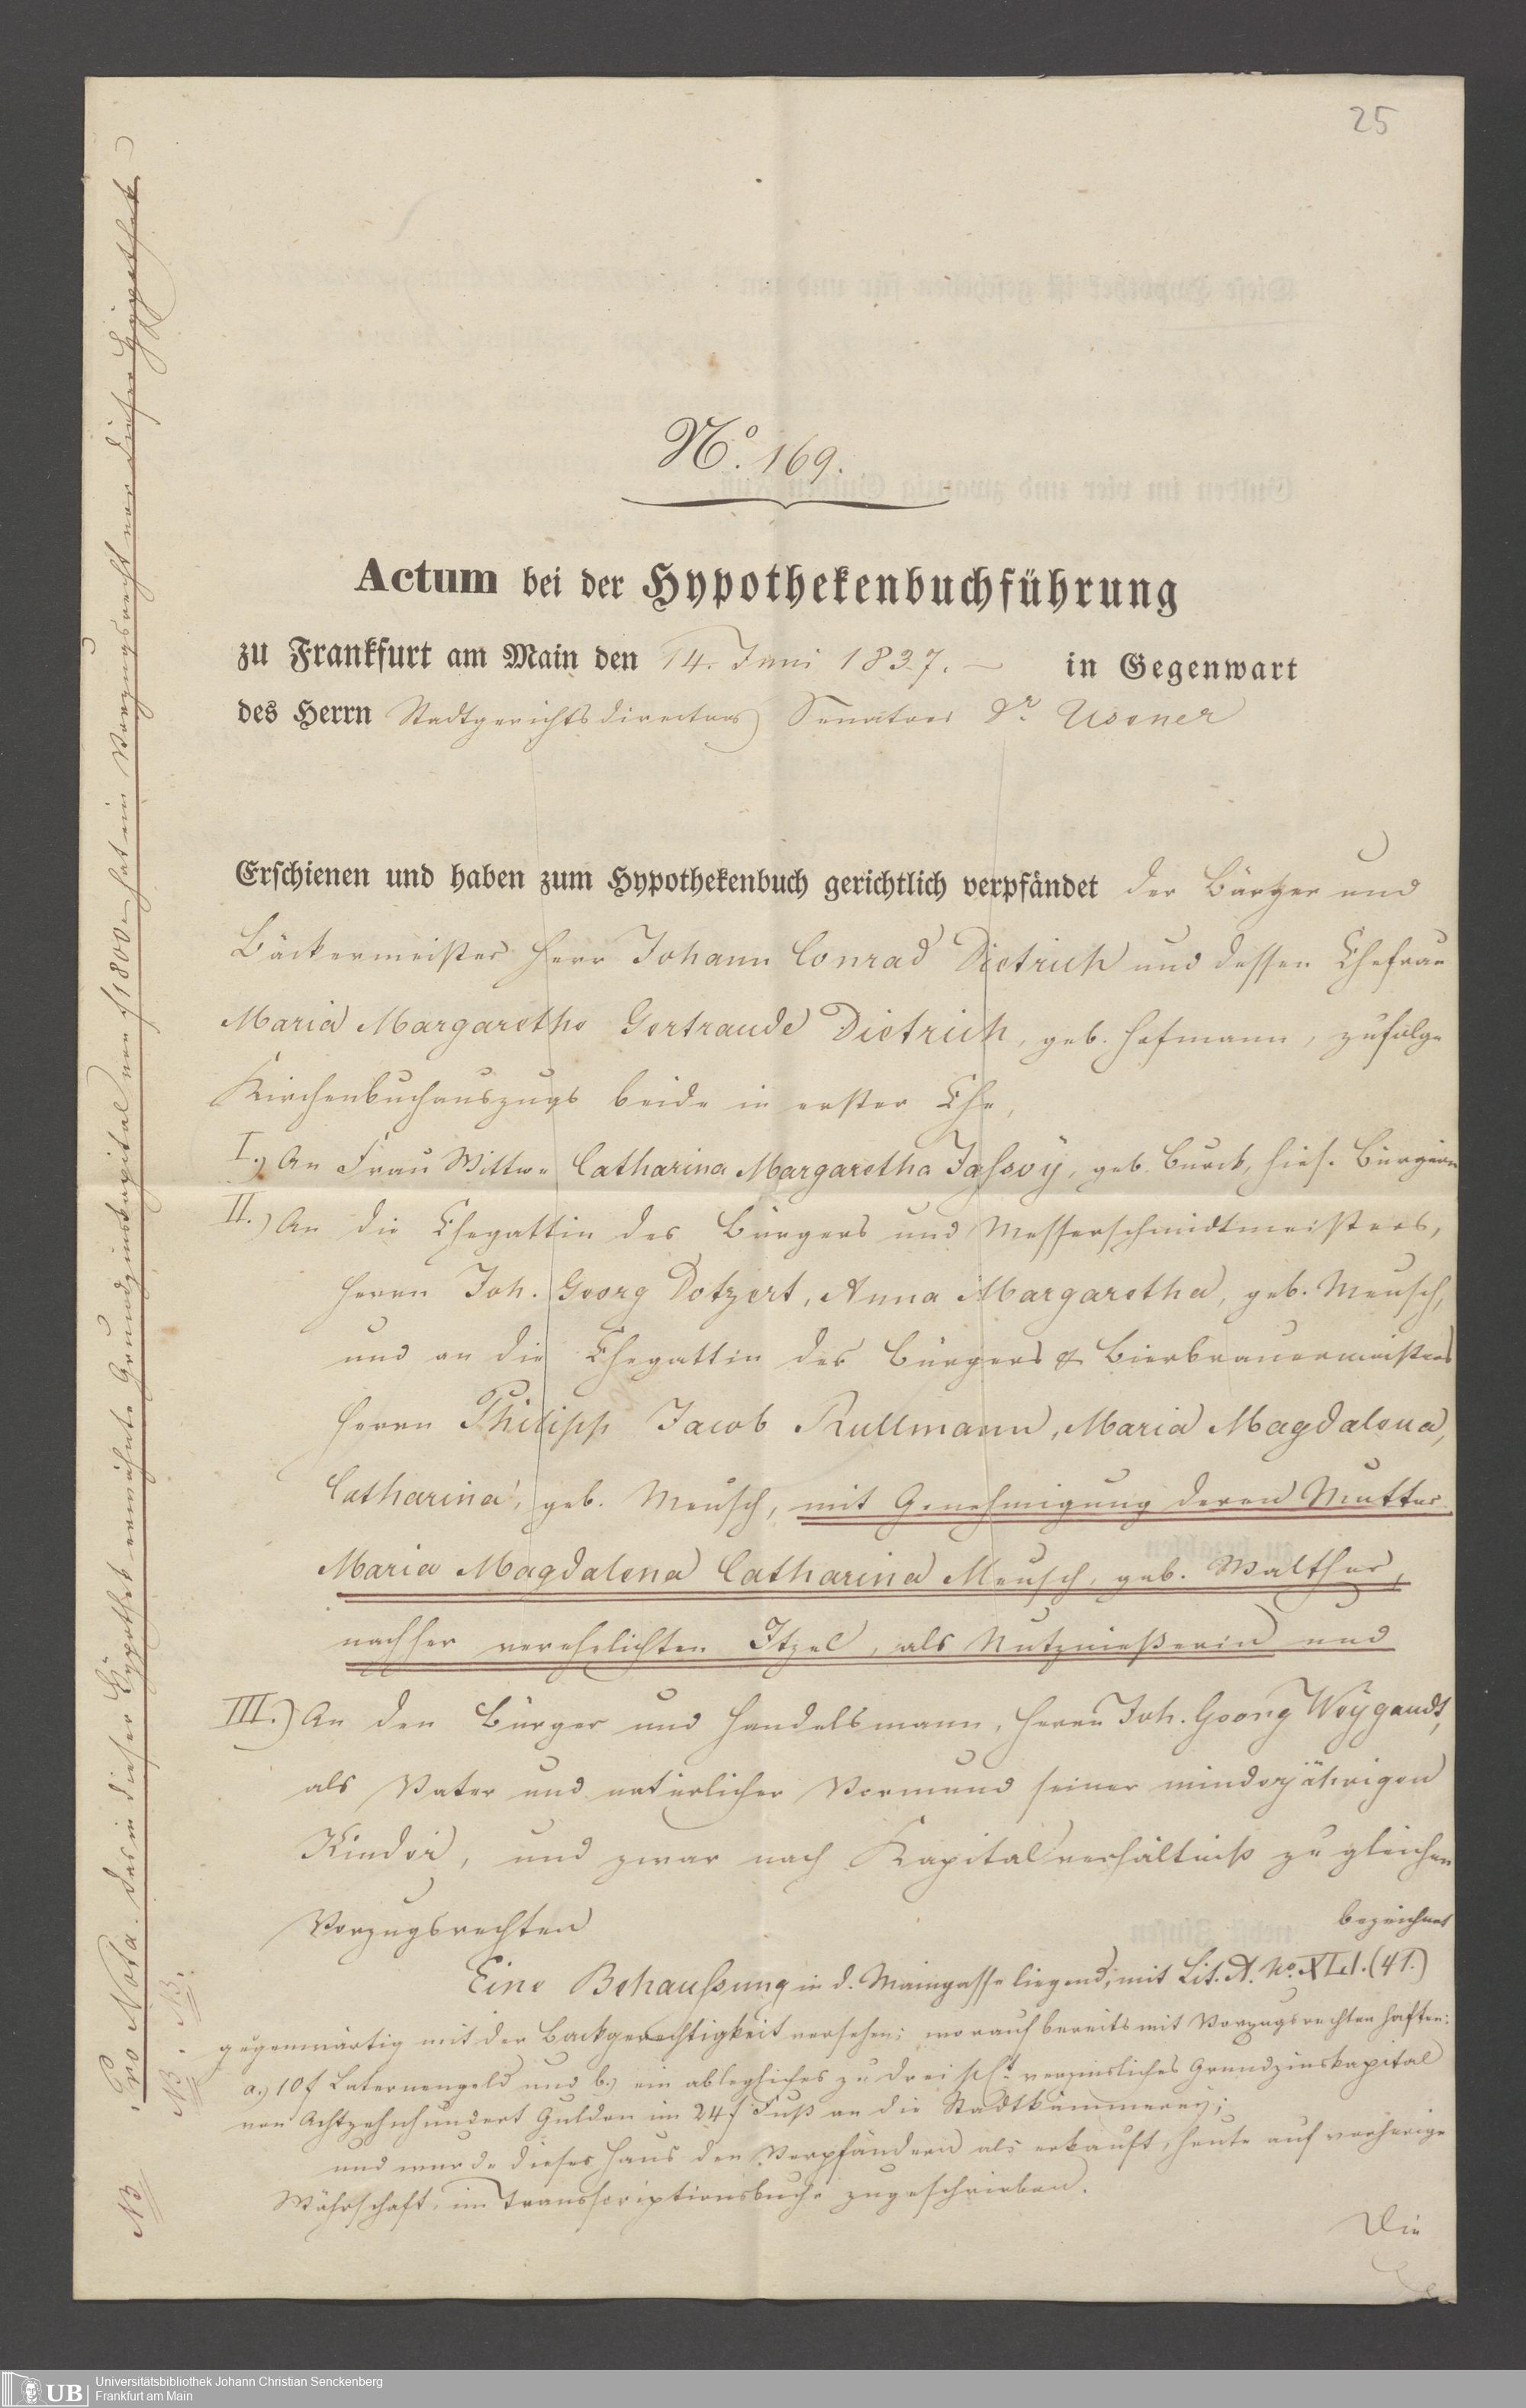 25
No. 169.
Actum bei der Hypothekenbuchführung
zu Frankfurt am Main den 14. Juni 1837. – in Gegenwart
des Herrn Stadtgerichtsdirectors Senators Dr. Usener
Erschienen und haben zum Hypothekenbuch gerichtlich verpfändet der Bürger und
Bäckermeister Herr Johann Conrad Dietrich und dessen Ehefrau
Maria Margaretha Gertraude Dietrich, geb. Hofmann, zufolge
Kirchenbuchauszugs beide in erster Ehe,
I.) An Frau Wittwe Catharina Margaretha Jassoÿ, geb. Burck, hies. Bürgerin
II.) An die Ehegattin des Bürgers und Messerschmidtmeisters,
Herrn Joh. Georg Dotzert, Anna Margaretha, geb. Meusch,
und an die Ehegattin des Bürgers & Bierbrauermeisters
Herrn Philipp Jacob Rullmann, Maria Magdalena,
Catharina, geb. Meusch, mit Genehmigung deren Mutter
Maria Magdalena Catharina Meusch, geb. Walther,
nachher verehelichten Itzel, als Nutznießerin und
III.) An den Bürger und Handelsmann, Herrn Joh. Georg Weÿgandt,
als Vater und natürlicher Vormund seiner minderjährigen
Kinder, und zwar nach Kapitalverhältniß zu gleichen
Vorzugsrechten
bezeichnet
Eine Behaußung in d. Maingasse liegend, mit Lit. A. No. XLI. (41.)
gegenwärtig mit der Backgerechtigkeit versehen; worauf bereits mit Vorzugsrechten haften:
a.) 10 f Laternengeld und b.) ein ablegliches zu drei pCt. verzinsliches Grundzinskapital
von Achtzehnhundert Gulden im 24 f Fuß an die Stadtkämmereÿ;
und wurde dieses Haus den Verpfändern als erkauft, heute auf vorherige
Währschaft, im Transscriptionsbuche zugeschrieben.
Die
NB. Pro Nota. Das in dieser Hypothek erwähnte Grundzinskapital von f 1800 – hat ein Vorzugsrecht vor dieser Hypothek
NB. NB.
Universitätsbibliothek Johann Christian Senckenberg
Frankfurt am Main
UB